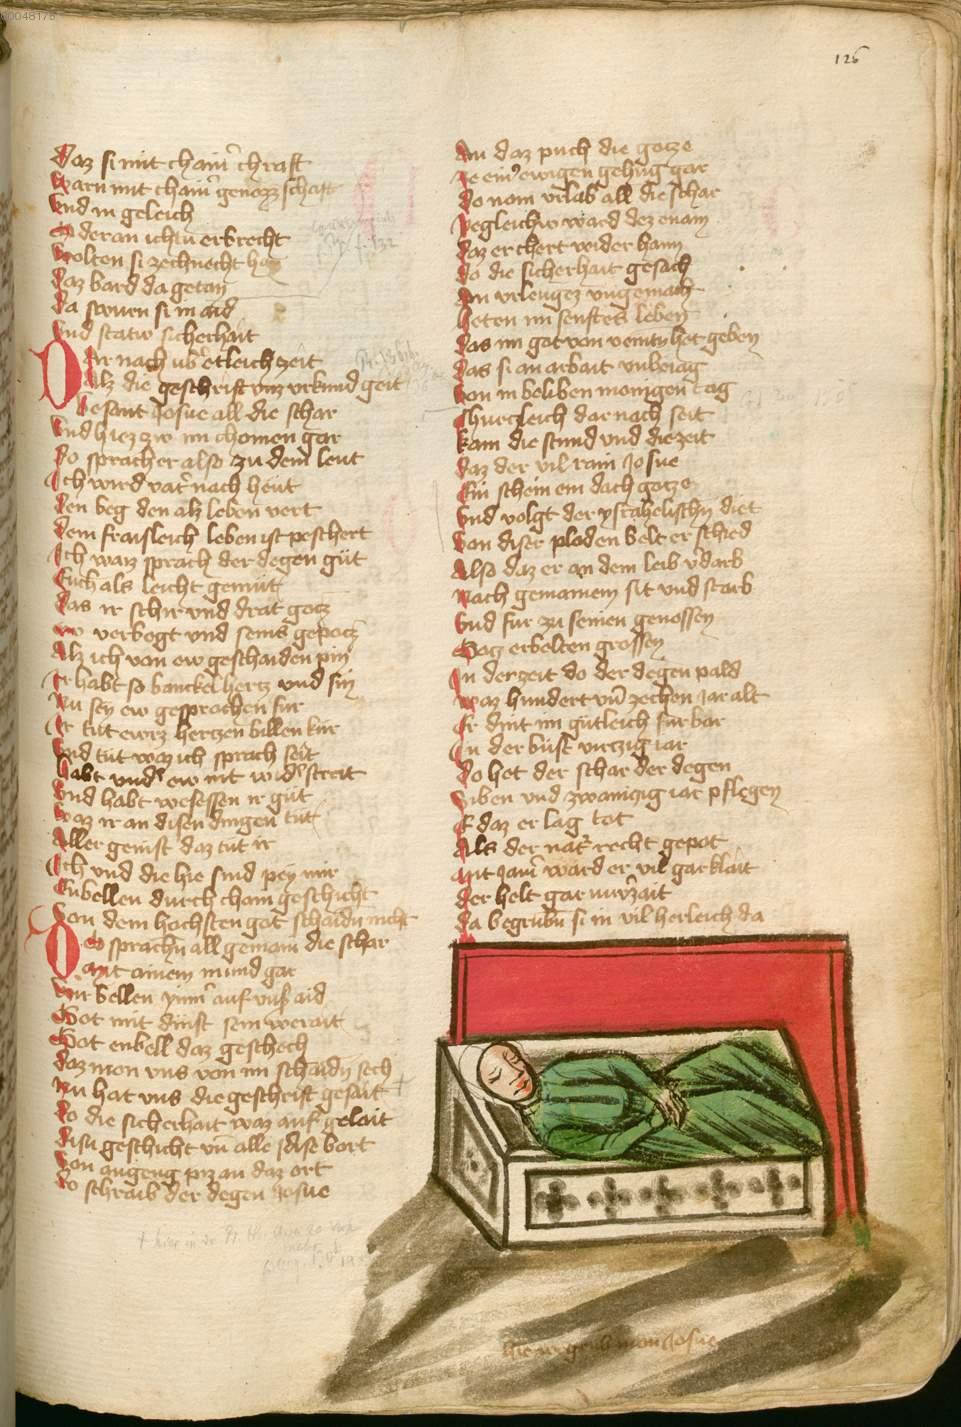 126
Daz si mit chainr chraft
Warn mit chainr genozzschaft
Vnd in geleich
So deran ichtu erbrecht
Wolten si ze chnecht han
Daz ward da getan
Da swurn si in aid
Vnd statiu sicherhait
Dar nach vbr etleich zeit
Alz die geschrift vnz vrkund geit
Besant Josue all die schar
Vnd hiez zw im chomen gar
Do sprach er also zu dem leut
Ich wird vatr nach heut
Den beg den alz leben vert
Dem fraisleich leben ist peschert
Ich waiz sprach der degen gut
Euch als leicht gemut
Das ir schir vnd drat gotz
verbogt vnd seins gepotz
Alz ich von ew geschaiden pin
Ir habt so wanckel hertz vnd sin
Nu sey ew gesprochen fur
Ir tut ewrz hertzen willen kur
Vnd tut waz ich sprach seit
Habt vndr ew nit widr streit
Vnd habt wesessen ir gut
Waz ir an disen dingen tut
Aller geinst daz tut ir
Ich vnd die hie sind pey mir
Enwellen durch chain geschicht
Von dem hochsten got schaidn nicht
Do sprachn all gemain die schar
Mit ainem mund gar
Wir wellen ymmr auf vnser aid
Got mit dinst sein werait
Got enwell daz geschech
Daz mon vns von im schaidn sech
Nu hat vns die geschrift gesait
Do die sicherhait waz auf gelait
Disu geschicht vn alle dise wort
Von angeng piz an daz ort
Do schraib der degen Josue
An daz puch die gotz e
Ze einr ewigen gehug gar
Do nam vrlab all die schar
Yegleichw ward dez enain
Daz er chert wider haim
Do die sicherhait gesach
An vrleugez vngemach
Heten im senftes leben
Das im got von veintn het geben
Das si an arbait vnbetag
Von in beliben monigen tag
Churczleich dar nach seit
Kam die stund vnd die zeit
Daz der vil rain Josue
Ein schein ein dach gotz e
Vnd volgt der ysrahelischn diet
Von diser ploden welt er schied
Also daz er an dem leib vrdarb
Nach gemainem sit vnd starb
Vnd fur zu seinen genossen
Gotz erwelten grossen
In der zeit do der degen pald
Waz hundert vn zechen jar alt
Er dint im gutleich fur bar
In der wust virczig iar
Do het der schar der degen
Siben vnd zwainizig iar pflegen
E daz er lag tot
Als der natr recht gepot
Mit jamr ward er vil gar klait
Der helt gar vnvrzait
Da begrubn si in vil herleich da
Hie wegrub man Josue